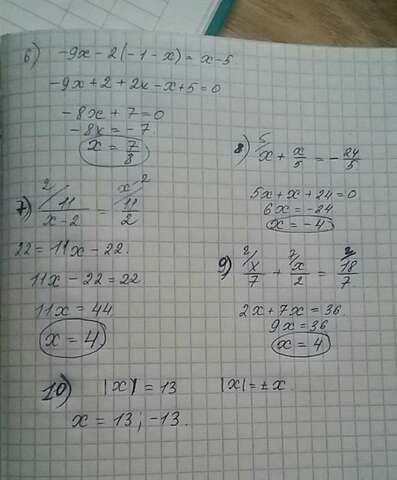 6) -9x - 2(-1-x) = x-5
-9x+2+2x-x+5=0
-8x+7=0
-8x=-7
x = 7/8
7) 2/ 11/(x-2) = x-2/ 11/2
22=11x-22
11x-22=22
11x=44
x=4
8) 5/ x + x/5 = -24/5
5x+x+24=0
6x=-24
x=-4
9) 2/ x/7 + 7/ x/2 = 2/ 18/7
2x+7x=36
9x=36
x=4
10) |x|=13 |x|=±x
x=13; -13.